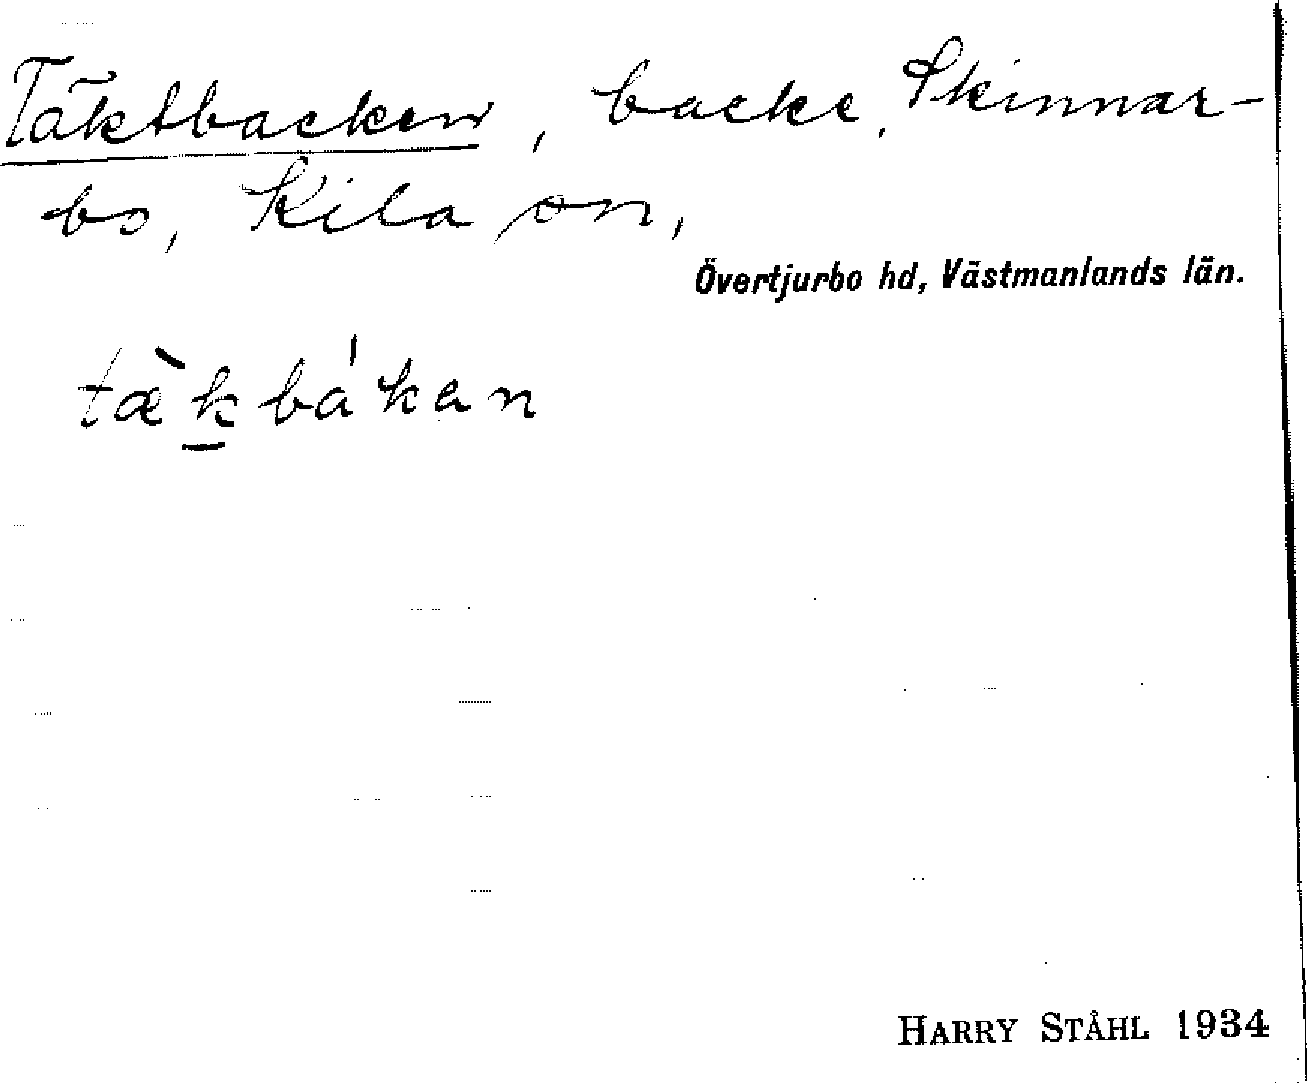 Täktbacken, backe, Skinnar-
bo, Kila sn,
Övertjurbo hd, Västmanlands län.
tæ̀k̲bákan
HARRY STÅHL 1934